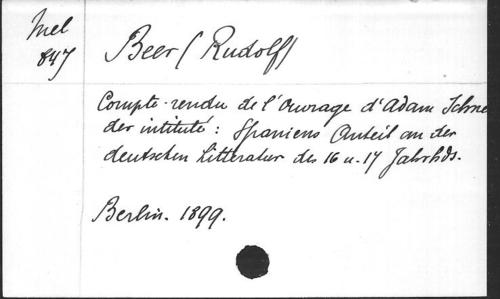 Mel
847
Beer (Rudolf)
Compte-rendu de l'Ouvrage d'Adam Schnei
der intitulé: Spaniens Anteil an der
deutschen Litteratur des 16 u. 17 Jahrhds.
Berlin. 1899.